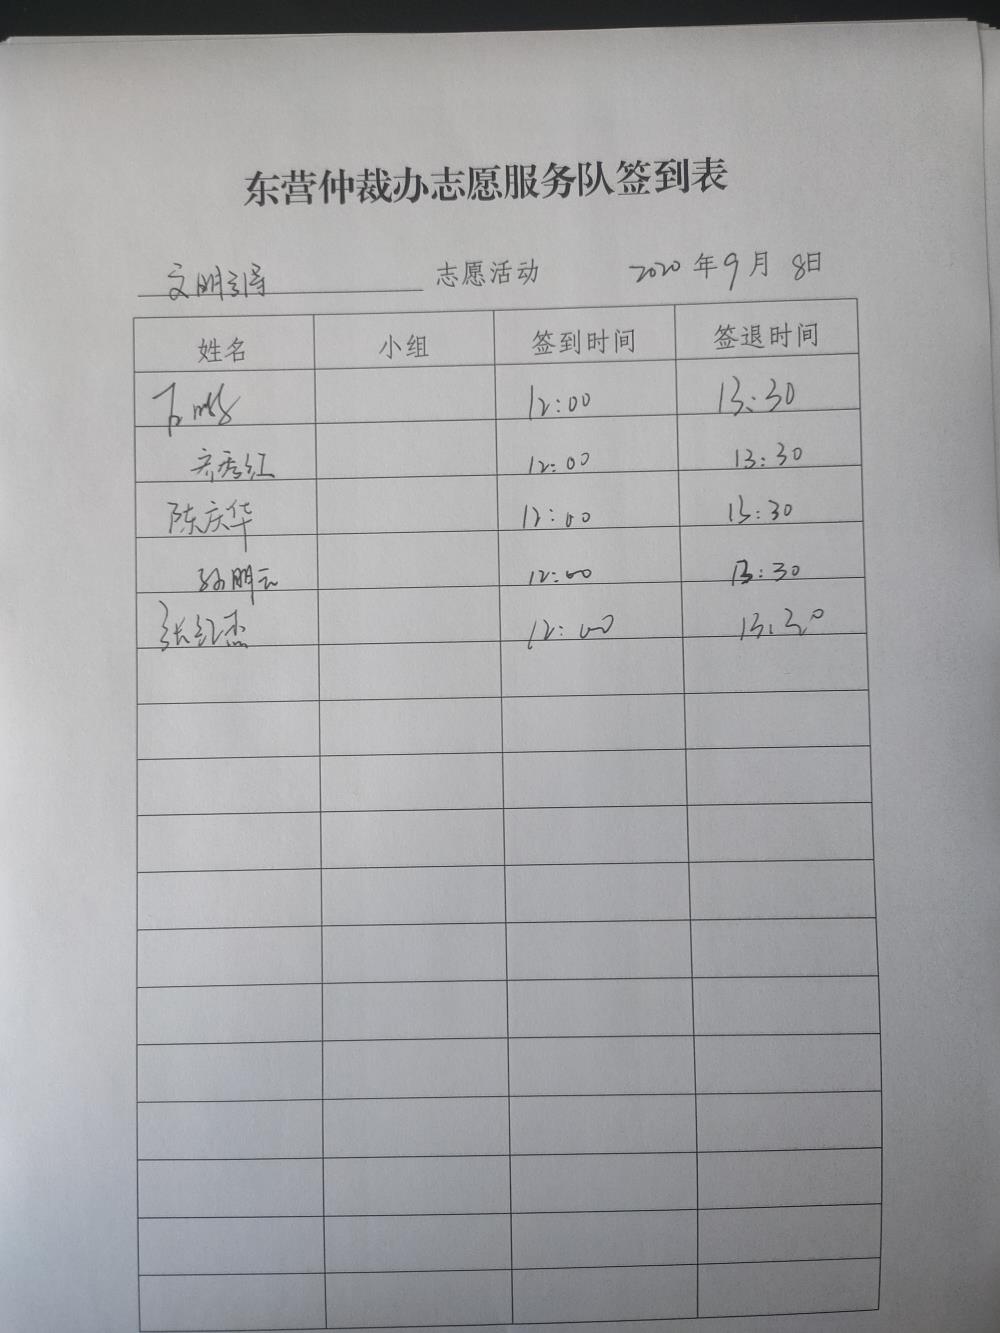 东营仲裁办志愿服务队签到表
文明引导 志愿活动 2020年9月8日
姓名 小组 签到时间 签退时间
12:00 13:30
齐秀红 12:00 13:30
陈庆华 12:00 13:30
孙明云 12:00 13:30
张红杰 12:00 13:30